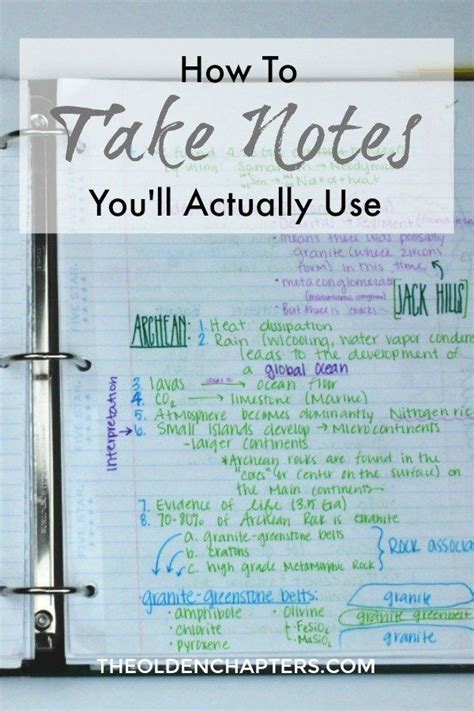 How To
Take Notes
You'll Actually Use
means there was possibly
granite (where zircons
form) in this time
metaconglomerate
[JACK HILLS]
But there is cracks
ARCHEAN: 1. Heat dissipation
2. Rain (w/cooling, water vapor condens
leads to the development of
a global ocean
3. lavas → ocean floor
4. CO2 → limestone (Marine)
5. Atmosphere becomes dominantly Nitrogen ric
Interpretation
6. Small Islands develop → Microcontinents
-larger continents
*Archean rocks are found in the
"cores" or center on the surface) on
the Main continents
7. Evidence of life (3.5 Ga)
8. 70-80% of Archean Rock is Granite
a. granite-greenstone belts
b. cratons
Rock associa
c. high grade Metamorphic Rock
granite-greenstone belts:
granite
• amphibole • Olivine
granite greenbelt
• chlorite
granite
• pyroxene
THEOLDENCHAPTERS.COM